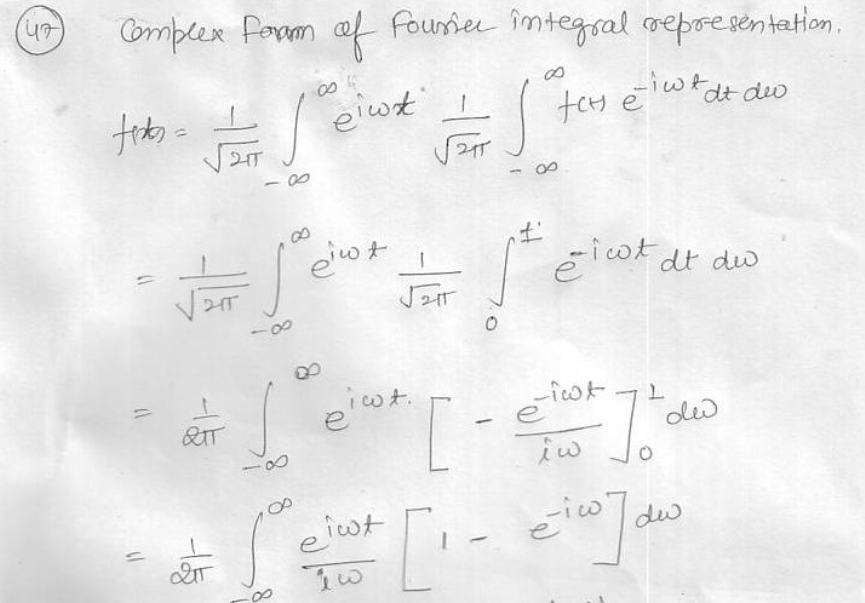 47 Complex Form of Fourier integral representation.
f(t) = 1/√2π ∫_{-∞}^{∞} e^{iωt} 1/√2π ∫_{-∞}^{∞} f(t) e^{-iωt} dt dω
= 1/√2π ∫_{-∞}^{∞} e^{iωt} 1/√2π ∫_{0}^{1} e^{-iωt} dt dω
= 1/2π ∫_{-∞}^{∞} e^{iωt} [ - e^{-iωt}/iω ]_{0}^{1} dω
= 1/2π ∫_{-∞}^{∞} e^{iωt}/iω [ 1 - e^{-iω} ] dω